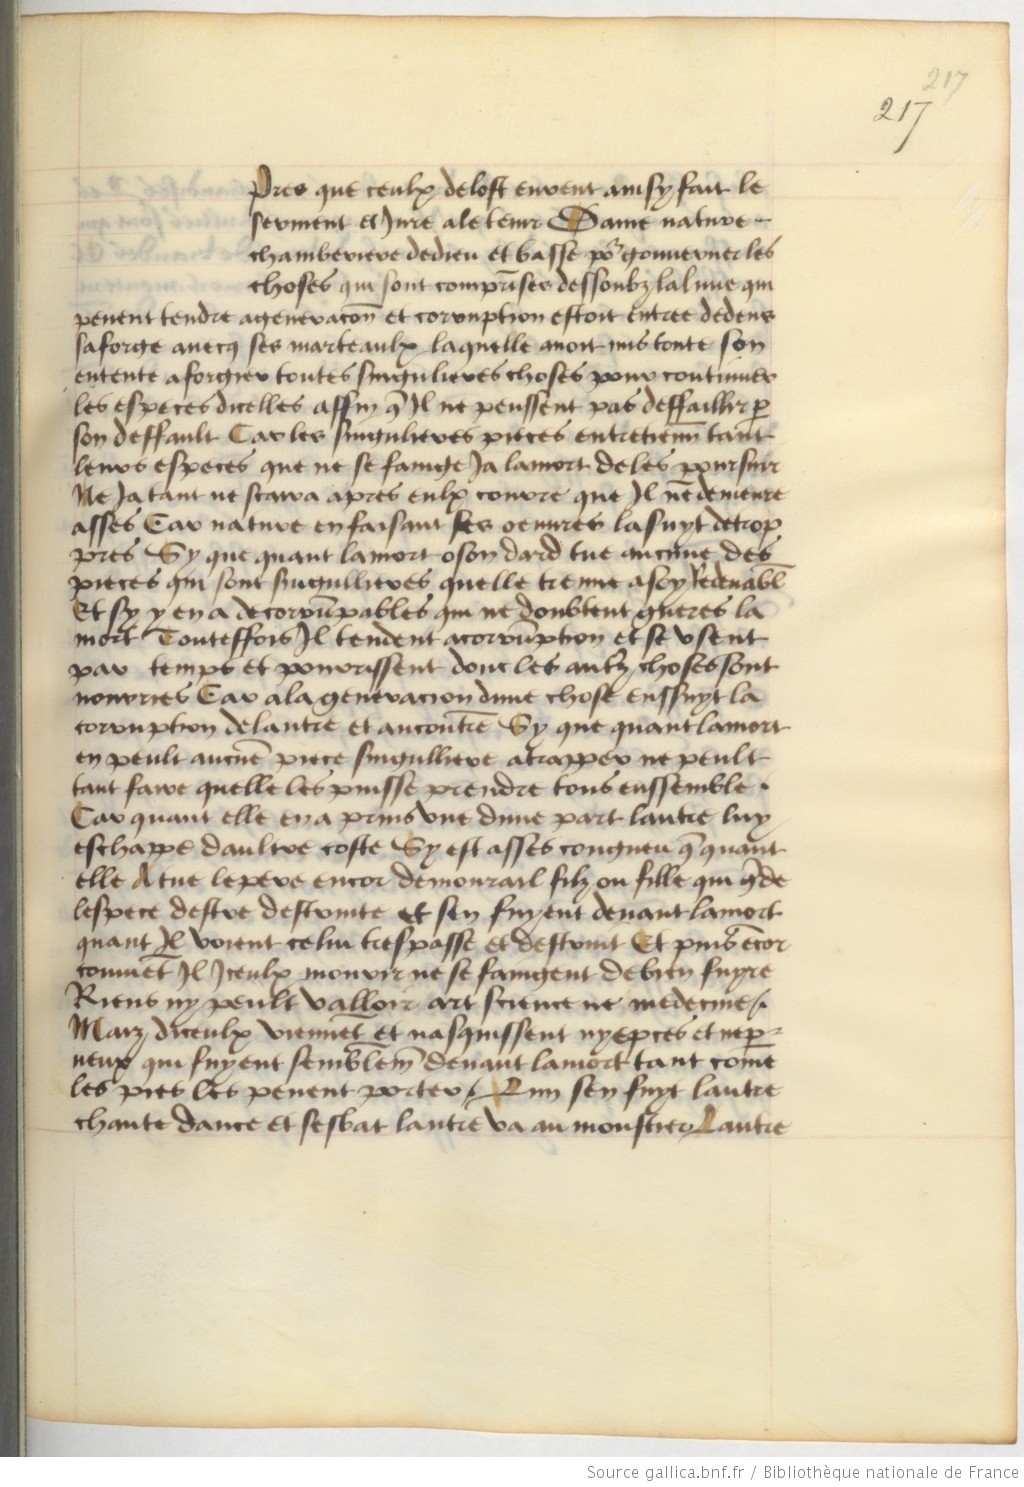 217
217
Pres que ceulx de lost eurent ainsy fait le
serment et Jure a le tenir Dame nature
chamberiere de dieu et basse por gouuerner les
choses qui sont comprises dessoubz la lune qui
peuent tendre a generacon et corruption estoit entree dedens
sa forge auecq ses marteaulx laquelle auoit mis toute son
entente a forgier toutes singulieres choses pour continuer
les especes dicelles affin q Il ne peussent pas deffaillir p
son deffault Car les singulieres pieces entretienn tant
leurs especes que ne se fainge Ja la mort de les poursuir
Ne Ja tant ne scaura apres eulx courre que Il nen demeure
asses Car nature en faisant ses oeuures la suyt de trop
pres Sy que quant la mort o son dard tue aucune des
pieces qui sont singullieres quelle treuue a soy Redeuabl
Et sy y en a de corrumpables qui ne doubtent gueres la
mort Touteffois Il tendent a corruption et se vsent
par temps et pourrissent donc les autrz choses sont
nourries Car a la generacion dune chose enssuyt la
corruption de lautre et au contre Sy que quant la mort
en peult aucune piece singulliere atrapper ne peult
tant faire quelle les puisse prendre tous enssemble
Car quant elle en a prins vne dune part lautre luy
eschappe daultre coste Sy est asses congneu q quant
elle A tue le pere encor demoura il filz ou fille qui gde
lespece destre destruite et sen fuyent deuant la mort
quant Il voient celui trespasse et destruit Et puis encor
conuiet Il Iceulx mourir ne se faingent de bien fuyre
Riens ny peult valloir art science ne medecine
Marz diceulx viennet et nasquissent nyepces et nep
ueux qui fuyent semblem deuant la mort tant come
les pies les peuent porter Lun sen fuyt lautre
chante dance et sesbat lautre va au moustier Lautre
Source gallica.bnf.fr / Bibliothèque nationale de France